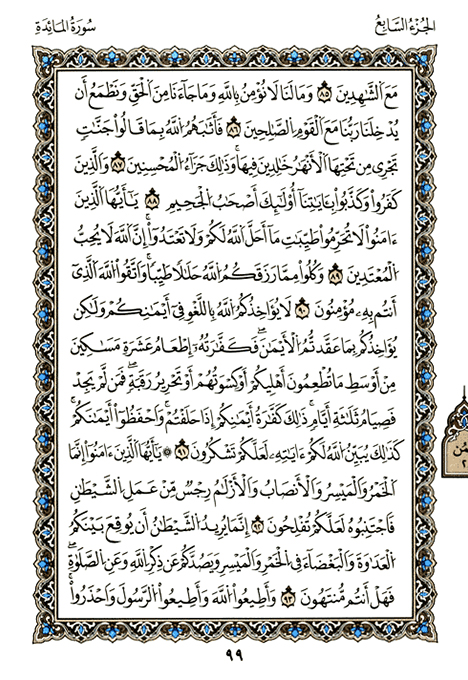 الجُزْءُ السَّابِعُ
سُورَةُ المَائِدَةِ
مَعَ ٱلشَّٰهِدِينَ ٨٥ وَمَا لَنَا لَا نُؤْمِنُ بِٱللَّهِ وَمَا جَآءَنَا مِنَ ٱلْحَقِّ وَنَطْمَعُ أَن
يُدْخِلَنَا رَبُّنَا مَعَ ٱلْقَوْمِ ٱلصَّٰلِحِينَ ٨٦ فَأَثَٰبَهُمُ ٱللَّهُ بِمَا قَالُوا۟ جَنَّٰتٍ
تَجْرِى مِن تَحْتِهَا ٱلْأَنْهَٰرُ خَٰلِدِينَ فِيهَا وَذَٰلِكَ جَزَآءُ ٱلْمُحْسِنِينَ ٨٧ وَٱلَّذِينَ
كَفَرُوا۟ وَكَذَّبُوا۟ بِـَٔايَٰتِنَآ أُو۟لَٰٓئِكَ أَصْحَٰبُ ٱلْجَحِيمِ ٨٨ يَٰٓأَيُّهَا ٱلَّذِينَ
ءَامَنُوا۟ لَا تُحَرِّمُوا۟ طَيِّبَٰتِ مَآ أَحَلَّ ٱللَّهُ لَكُمْ وَلَا تَعْتَدُوٓا۟ إِنَّ ٱللَّهَ لَا يُحِبُّ
ٱلْمُعْتَدِينَ ٨٩ وَكُلُوا۟ مِمَّا رَزَقَكُمُ ٱللَّهُ حَلَٰلًا طَيِّبًا وَٱتَّقُوا۟ ٱللَّهَ ٱلَّذِىٓ
أَنتُم بِهِۦ مُؤْمِنُونَ ٩٠ لَا يُؤَاخِذُكُمُ ٱللَّهُ بِٱللَّغْوِ فِىٓ أَيْمَٰنِكُمْ وَلَٰكِن
يُؤَاخِذُكُم بِمَا عَقَّدتُّمُ ٱلْأَيْمَٰنَ فَكَفَّٰرَتُهُۥٓ إِطْعَامُ عَشَرَةِ مَسَٰكِينَ
مِنْ أَوْسَطِ مَا تُطْعِمُونَ أَهْلِيكُمْ أَوْ كِسْوَتُهُمْ أَوْ تَحْرِيرُ رَقَبَةٍ فَمَن لَّمْ يَجِدْ
فَصِيَامُ ثَلَٰثَةِ أَيَّامٍ ذَٰلِكَ كَفَّٰرَةُ أَيْمَٰنِكُمْ إِذَا حَلَفْتُمْ وَٱحْفَظُوٓا۟ أَيْمَٰنَكُمْ
كَذَٰلِكَ يُبَيِّنُ ٱللَّهُ لَكُمْ ءَايَٰتِهِۦ لَعَلَّكُمْ تَشْكُرُونَ ٩١ ۞ يَٰٓأَيُّهَا ٱلَّذِينَ ءَامَنُوٓا۟ إِنَّمَا
ٱلْخَمْرُ وَٱلْمَيْسِرُ وَٱلْأَنصَابُ وَٱلْأَزْلَٰمُ رِجْسٌ مِّنْ عَمَلِ ٱلشَّيْطَٰنِ
فَٱجْتَنِبُوهُ لَعَلَّكُمْ تُفْلِحُونَ ٩٢ إِنَّمَا يُرِيدُ ٱلشَّيْطَٰنُ أَن يُوقِعَ بَيْنَكُمُ
ٱلْعَدَٰوَةَ وَٱلْبَغْضَآءَ فِى ٱلْخَمْرِ وَٱلْمَيْسِرِ وَيَصُدَّكُمْ عَن ذِكْرِ ٱللَّهِ وَعَنِ ٱلصَّلَوٰةِ
فَهَلْ أَنتُم مُّنتَهُونَ ٩٣ وَأَطِيعُوا۟ ٱللَّهَ وَأَطِيعُوا۟ ٱلرَّسُولَ وَٱحْذَرُوا۟
٩٩